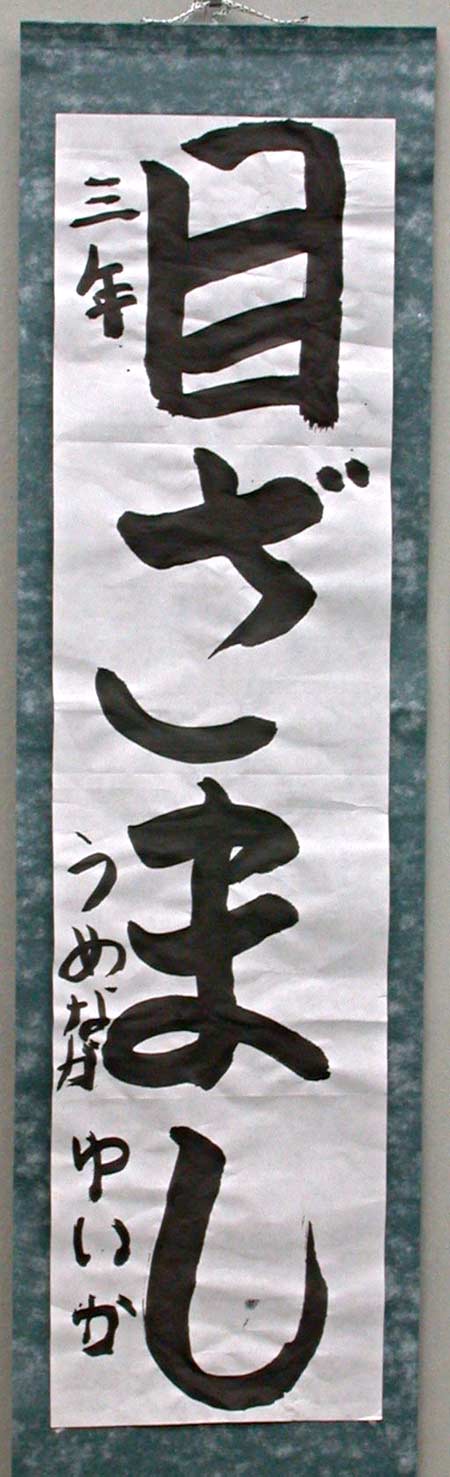 目ざまし
三年 うめなが ゆいか